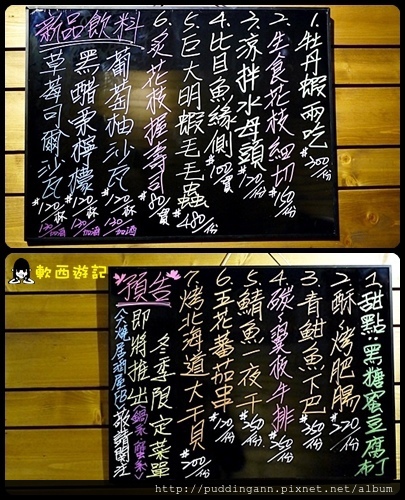 1.牡丹蝦兩吃 $300/份
2.生食花枝細切 150/份
3.涼拌水母頭 $120/份
4.比目魚緣側 $100/貫
5.巨大明蝦毛毛蟲 $480/份
6.炙花枝握壽司 80/貫
新品飲料
葡萄柚沙瓦 $120/杯 130/加酒
黑醋栗檸檬 $120/杯 130/加酒
草莓可爾沙瓦 $120/杯 130/加酒
軟西遊記
1.甜點:黑糖蜜豆腐布丁
2.酥烤肥腸 $320/份
3.青魽魚下巴 $350/份
4.碳翼板牛排 $350/份
5.鯖魚一夜干 $260/份
6.五花蕃茄串 $120/份
7.烤北海道大干貝 $200/份
預告
冬季限定菜單
即將推出
http://puddingann.pixnet.net/album